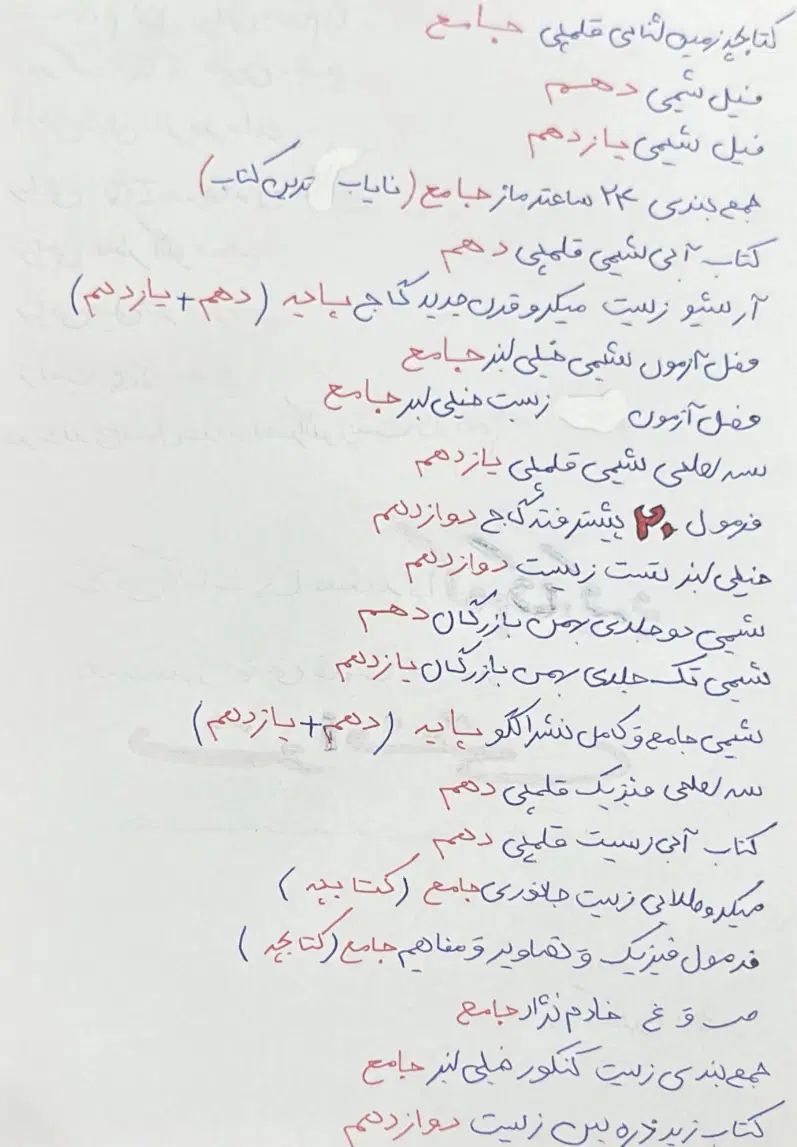 کتابچه زمین شناسی قلمچی جامع
فیل شیمی دهم
فیل شیمی یازدهم
جمع بندی ۲۴ ساعته ماز جامع (نایاب ترین کتاب)
کتاب آبی شیمی قلمچی دهم
آرشیو زیست میکرو قدن جدید گاج پایه (دهم + یازدهم)
فصل آزمون شیمی خیلی سبز جامع
فصل آزمون زیست خیلی سبز جامع
سه سطحی شیمی قلمچی یازدهم
فرمول ۲۰ پیشرفته گاج دوازدهم
خیلی سبز تست زیست دوازدهم
شیمی دو جلدی بهمن بازرگان دهم
شیمی تک جلدی بهمن بازرگان یازدهم
شیمی جامع و کامل نشر الگو پایه (دهم + یازدهم)
سه سطحی فیزیک قلمچی دهم
کتاب آبی زیست قلمچی دهم
میکرو طلایی زیست جانوری جامع (کتابچه)
فرمول فیزیک و تصاویر و مفاهیم جامع (کتابچه)
ص و غ خادم نژاد جامع
جمع بندی زیست کنکور خیلی سبز جامع
کتاب زیر ذره بین زیست دوازدهم